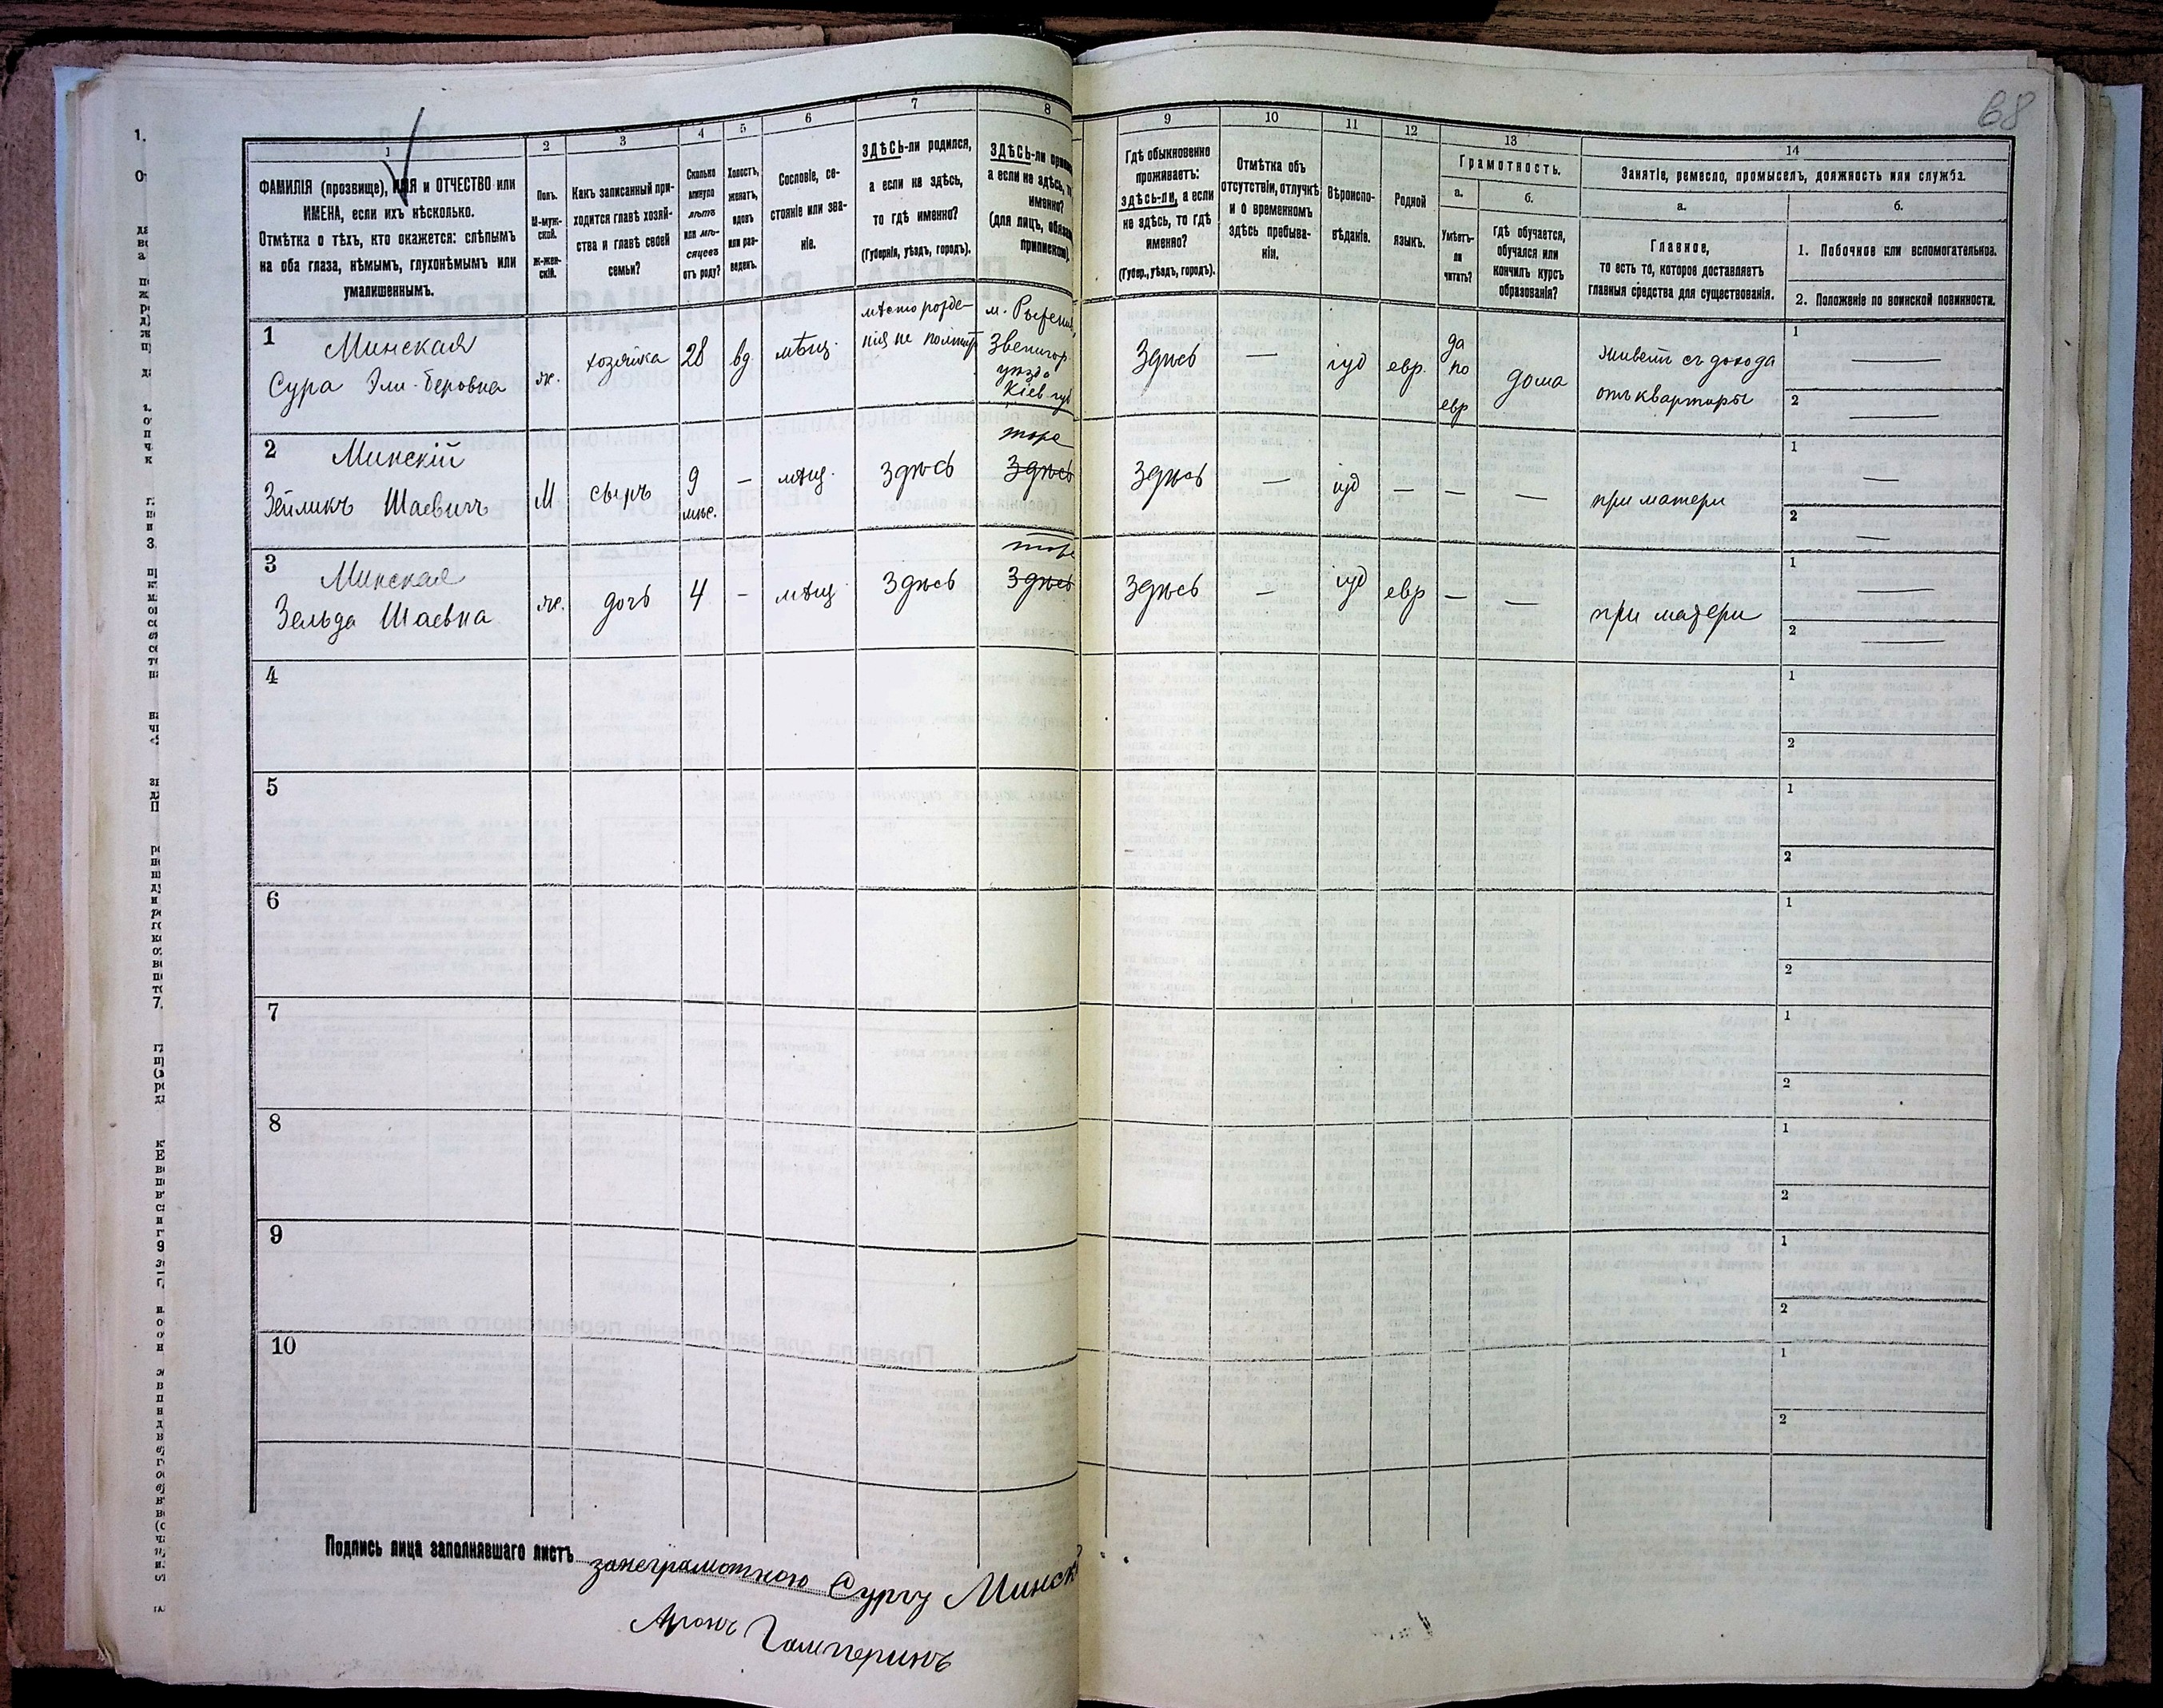 68
1
2
3
4
5
6
7
8
9
10
11
12
13
14
ФАМИЛІЯ (прозвище), ИМЯ и ОТЧЕСТВО или
ИМЕНА, если ихъ нѣсколько.
Отмѣтка о тѣхъ, кто окажется: слѣпымъ
на оба глаза, нѣмымъ, глухонѣмымъ или
умалишеннымъ.
Полъ.
М-муж-
ской.
Ж-жен-
скій.
Какъ записанный при-
ходится главѣ хозяй-
ства и главѣ своей
семьи?
Сколько
минуло
лѣтъ
или мѣ-
сяцевъ
отъ роду?
Холостъ,
женатъ,
вдовъ
или раз-
веденъ.
Сословіе, со-
стояніе или зва-
ніе.
ЗДѢСЬ-ли родился,
а если не здѣсь,
то гдѣ именно?
(Губернія, уѣздъ, городъ).
ЗДѢСЬ-ли
а если не здѣсь,
именно?
(для лицъ,
припискою).
Гдѣ обыкновенно
проживаетъ:
здѣсь-ли, а если
не здѣсь, то гдѣ
именно?
(Губер., уѣздъ, городъ).
Отмѣтка объ
отсутствіи, отлучкѣ
и о временномъ
здѣсь пребыва-
ніи.
Вѣроиспо-
вѣданіе.
Родной
языкъ.
Грамотность.
а.
б.
Умѣетъ-
ли
читать?
гдѣ обучается,
обучался или
кончилъ курсъ
образованія?
Занятіе, ремесло, промыселъ, должность или служба.
а.
б.
Главное,
то есть то, которое доставляетъ
главныя средства для существованія.
1. Побочное или вспомогательное.
2. Положеніе по воинской повинности.
1
Минская
Сура Эли-Беровна
ж.
хозяйка
28
вд
мѣщ.
мѣсто рожде-
нія не помнит
м.
Звенигор
уѣзда
Кіев губ
Здѣсь
—
іуд
евр.
да
по
евр
дома
живетъ съ дохода
отъ квартиры
1 —
2 —
2
Минскій
Зейликъ Шаевичъ
М
сынъ
9
мѣс.
—
мѣщ.
Здѣсь
тоже
Здѣсь
Здѣсь
—
іуд
—
—
—
при матери
1 —
2 —
3
Минская
Зельда Шаевна
ж.
дочь
4
—
мѣщ
Здѣсь
тоже
Здѣсь
Здѣсь
—
іуд
евр
—
—
при матери
1 —
2 —
4
1
2
5
1
2
6
1
2
7
1
2
8
1
2
9
1
2
10
1
2
Подпись лица заполнявшаго листъ занеграмотною Суру Минск
Аронъ Гальперинъ